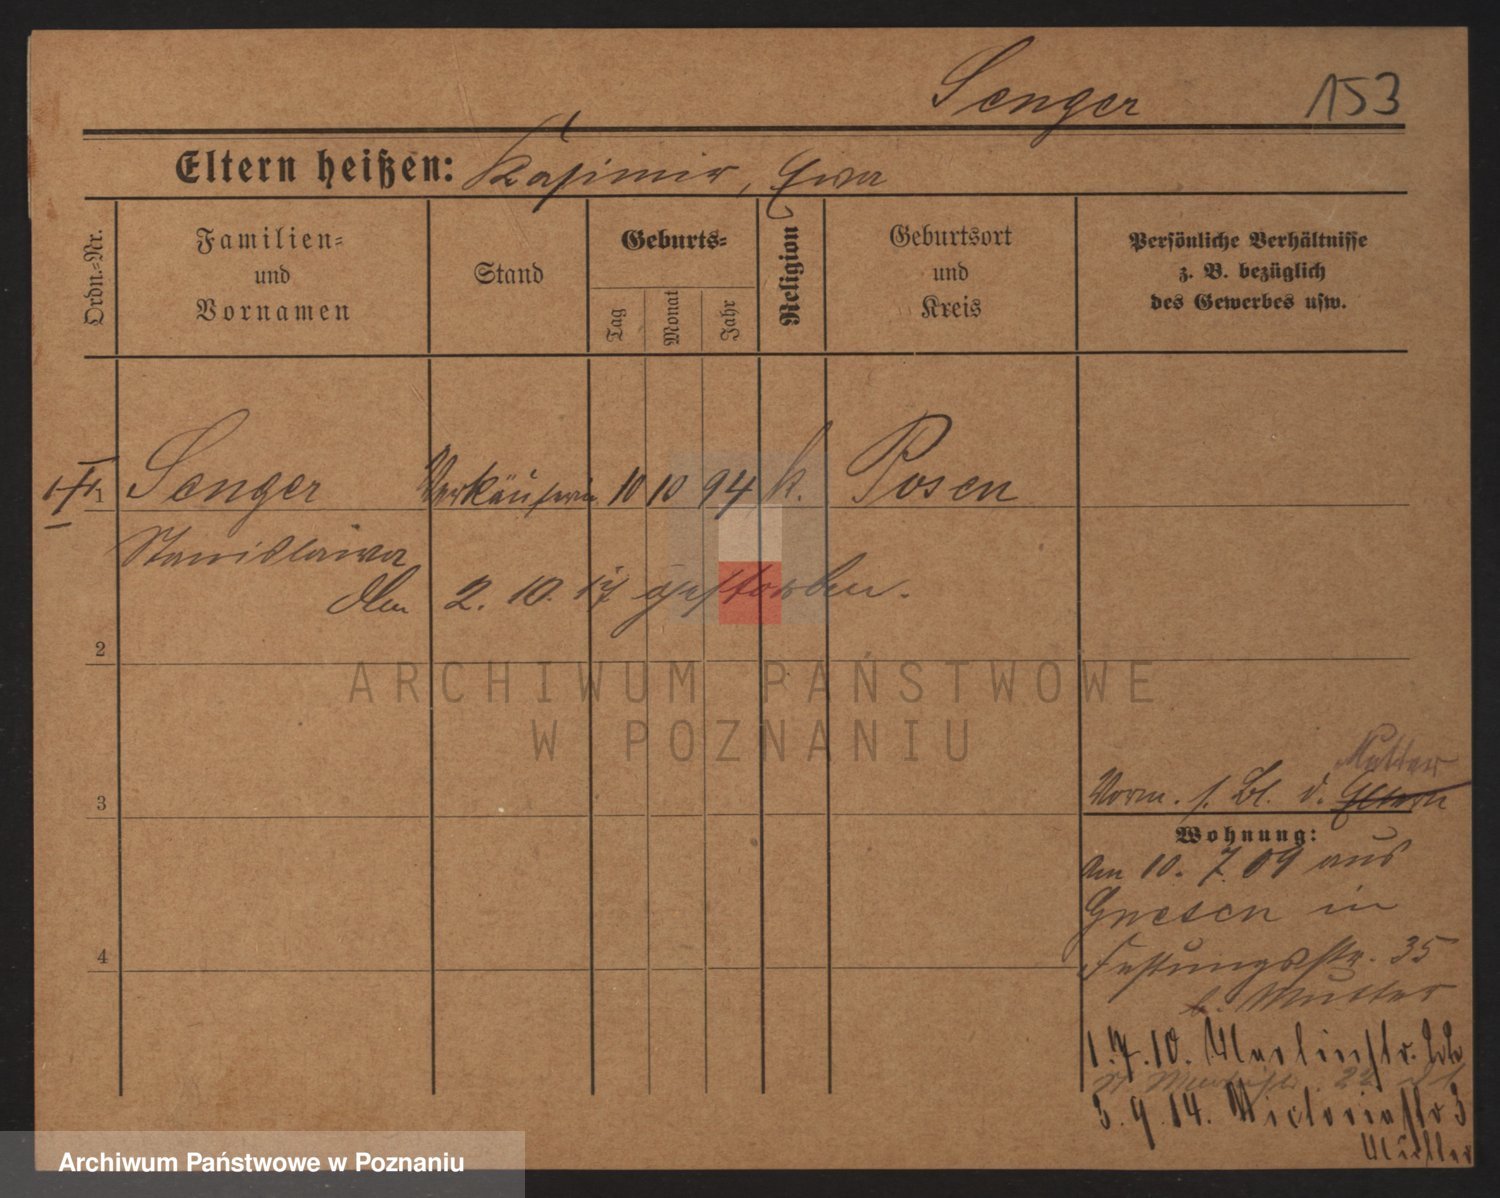 Senger 153
Eltern heißen: Kasimir, Ewa
Ordn.-Nr.
Familien- und Vornamen
Stand
Geburts-
Tag Monat Jahr
Religion
Geburtsort und Kreis
Persönliche Verhältnisse z. B. bezüglich des Gewerbes usw.
1 Senger Verkäuferin 10 10 94 k. Posen
Stanislawa
den 2. 10. 17 gestorben.
2
ARCHIWUM PAŃSTWOWE
W POZNANIU
Mutter
3
Vorm. s. Bl. d. Eltern
Wohnung:
Am 10. 7. 09 aus
Gnesen in
4
Festungsstr. 35
b. Mutter
1.7.10.
5.9.14. Victoriastr 3
Mutter
Archiwum Państwowe w Poznaniu